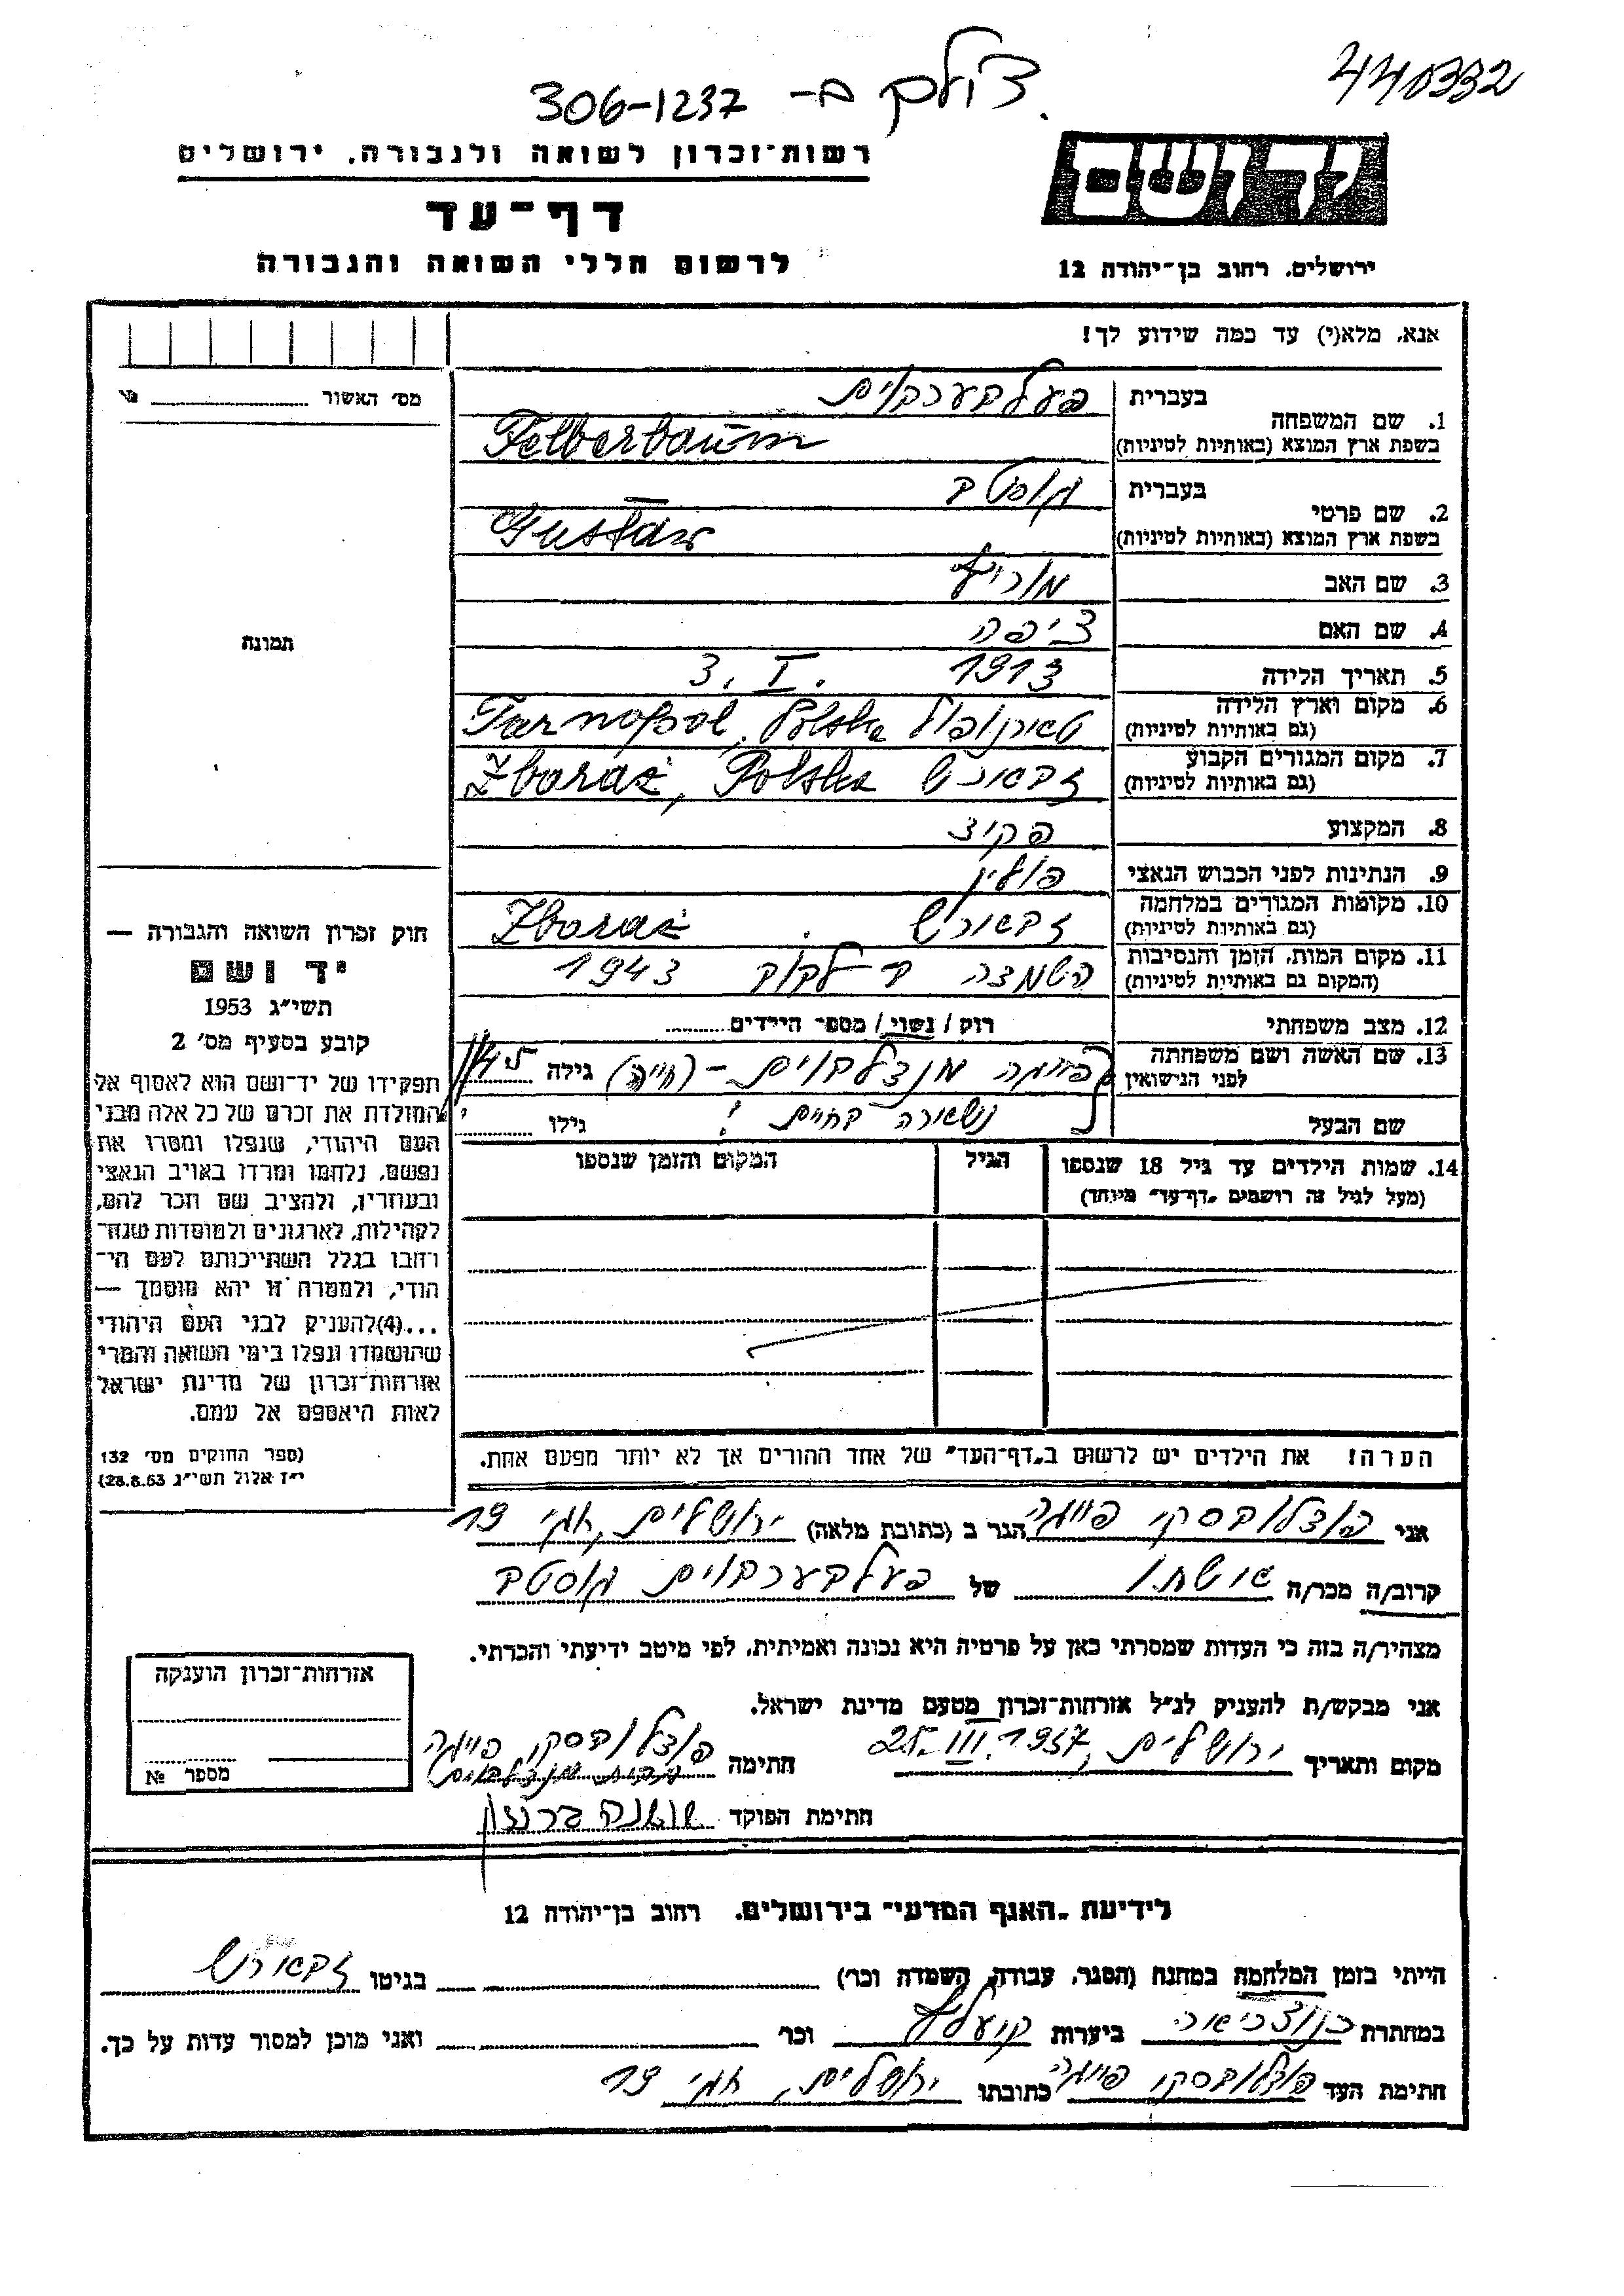 440332
צולם ב- 306-1237
יד ושם
רשות-זכרון לשואה ולגבורה, ירושלים
דף-עד
ירושלים, רחוב בן-יהודה 12
לרשום חללי השואה והגבורה
אנא, מלא(י) עד כמה שידוע לך!
מס' האשור №
בעברית פעלבערבוים
1. שם המשפחה
בשפת ארץ המוצא (באותיות לטיניות) Felberbaum
בעברית גוסטב
2. שם פרטי
בשפת ארץ המוצא (באותיות לטיניות) Gustaw
3. שם האב מוריץ
4. שם האם ציפה
5. תאריך הלידה 1913 .3. I
6. מקום וארץ הלידה
(גם באותיות לטיניות) טארנופול Tarnopol, Polska
7. מקום המגורים הקבוע
(גם באותיות לטיניות) זבאורש Zbaraż, Polska
8. המקצוע פקיד
9. הנתינות לפני הכבוש הנאצי פולין
10. מקומות המגורים במלחמה
(גם באותיות לטיניות) זבאורש Zbaraż
11. מקום המות, הזמן והנסיבות
(המקום גם באותיות לטיניות) השמדה 1943
12. מצב משפחתי רווק / נשוי / מספר הילדים
13. שם האשה ושם משפחתה
לפני הנישואין פייגה מנדלבוים - (חייה) גילה 45
שם הבעל נשארה בחיים! גילו
14. שמות הילדים עד גיל 18 שנספו
(מעל לגיל זה רושמים "דף-עד" מיוחד)
הגיל
המקום והזמן שנספו
הערה! את הילדים יש לרשום ב"דף-העד" של אחד ההורים אך לא יותר מפעם אחת.
תמונה
חוק זכרון השואה והגבורה —
יד ושם
תשי"ג 1953
קובע בסעיף מס' 2
תפקידו של יד-ושם הוא לאסוף אל
המולדת את זכרם של כל אלה מבני
העם היהודי, שנפלו ומסרו את
נפשם, נלחמו ומרדו באויב הנאצי
ובעוזריו, ולהציב שם וזכר להם,
לקהילות, לארגונים ולמוסדות שנח-
רבו בגלל השתייכותם לעם הי-
הודי, ולמטרה זו יהא מוסמך —
...(4)להעניק לבני העם היהודי
שהושמדו ונפלו בימי השואה והמרי
אזרחות-זכרון של מדינת ישראל
לאות היאספם אל עמם.
(ספר החוקים מס' 132
י"ז אלול תשי"ג 28.8.53)
אני פודלובסקי פייגה הגר ב (כתובת מלאה) ירושלים, חגי 19
קרוב/ה מכר/ה אישתו של פעלבערבוים גוסטב
מצהיר/ה בזה כי העדות שמסרתי כאן על פרטיה היא נכונה ואמיתית, לפי מיטב ידיעתי והכרתי.
אני מבקש/ת להעניק לנ"ל אזרחות-זכרון מטעם מדינת ישראל.
מקום ותאריך ירושלים, 25.III.1957 חתימה פודלובסקי פייגה
לבית מנדלבוים
חתימת הפוקד
אזרחות-זכרון הוענקה
מספר №
לידיעת "האגף המדעי" בירושלים, רחוב בן-יהודה 12
הייתי בזמן המלחמה במחנה (הסגר, עבודה, השמדה וכו') בגיטו זבאורש
במחתרת ביערות וכו' ואני מוכן למסור עדות על כך.
חתימת העד פודלובסקי פייגה כתובתו ירושלים, חגי 19